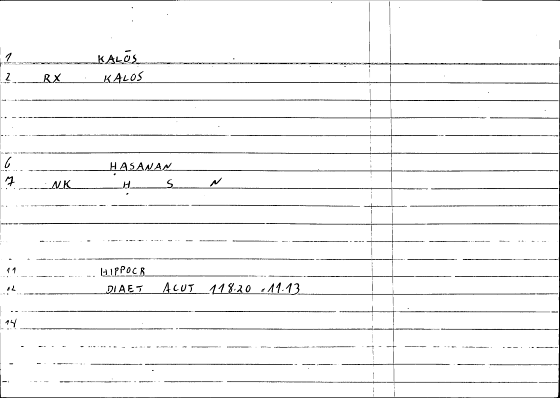 1 KALŌS
2 RX KALOS
6 ḤASANAN
7 NK Ḥ S N
11 HIPPOCR
12 DIAET ACUT 118.20 .11.13
14